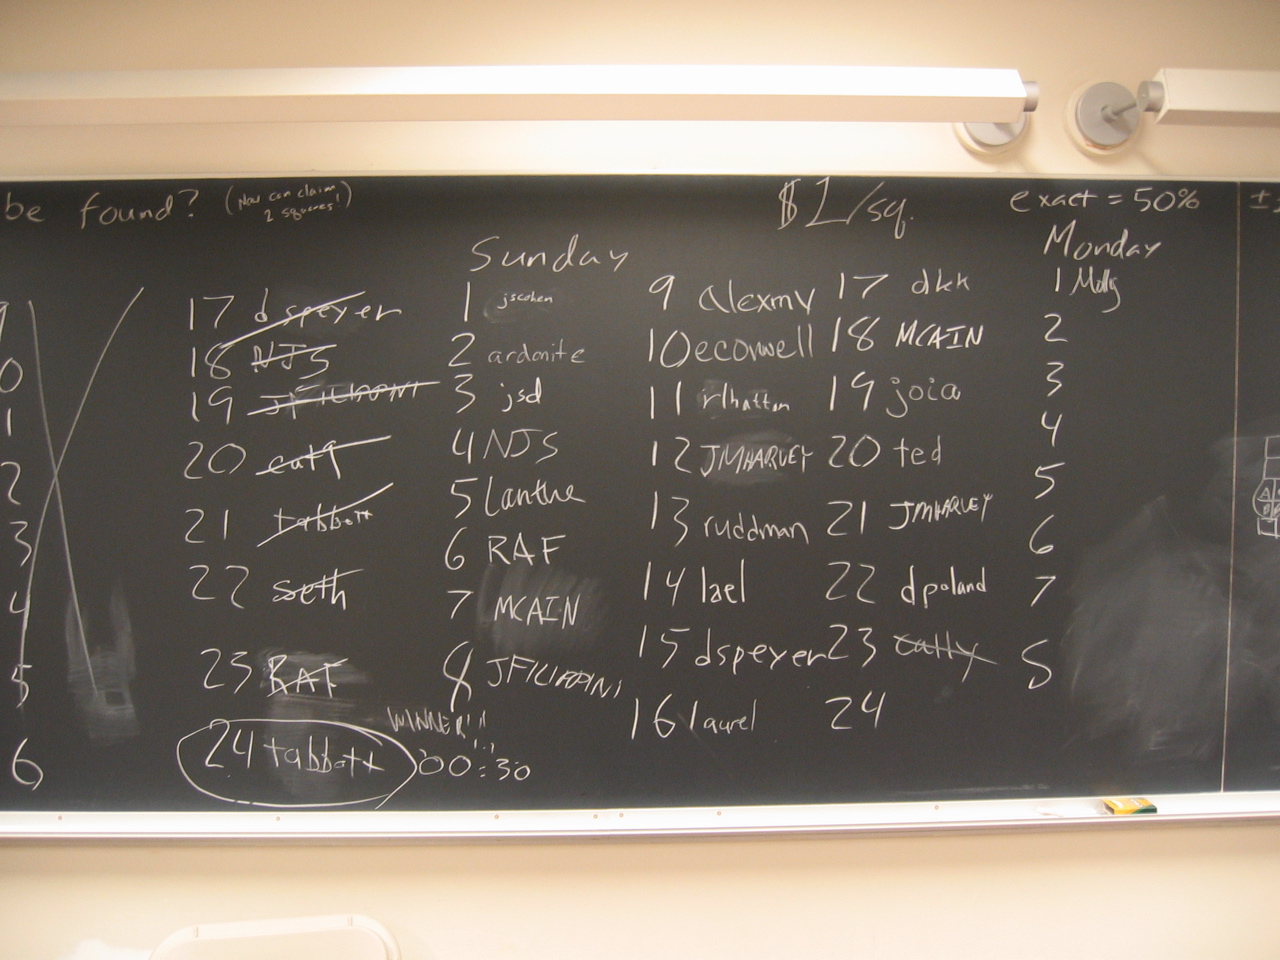 be found? (Now can claim
2 squares!)
$1/sq.
exact = 50%
Sunday
Monday
0
1
2
3
4
5
6
17 dspeyer
18 NJS
19 JFILIPPINI
20
21 tabbott
22 seth
23 RAF
24 tabbott
WINNER!!
00:30
1 jscohen
2 ardonite
3 jsd
4 NJS
5 lanthe
6 RAF
7 MCAIN
8 JFILIPPINI
9 alexmv
10 econwell
11 rlhatton
12 JMHARVEY
13 ruddman
14 lael
15 dspeyer
16 laurel
17 dkk
18 MCAIN
19 joia
20 ted
21 JMHARVEY
22 dpoland
23 cally
24
1 Molly
2
3
4
5
6
7
8